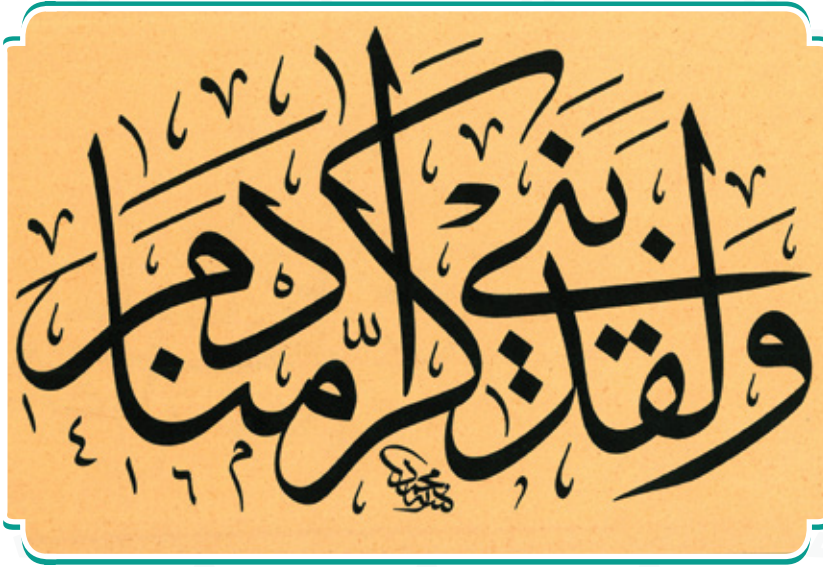 ولقد كرّمنا بني آدم
١٤١٦